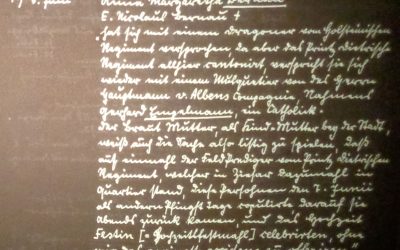 Anna Margaretha Bernau
E. Nicolaus Bernau +
hat sich mit einem Dragoner vom Holsteinischen
Regiment versprochen da aber das Printz Dietrische
Regiment allhier cantonirt, verspricht sie sich
wieder mit einem Mußquetier von des Herrn
Hauptmann v. Albens Compagnie, Nahmens
Gerhard Engelmann, ein Catholick.
Der Braut Mutter, als Kind-Mutter bey der Stadt,
weiß auch die Sache also listig zu spielen, daß
auf einmahl der Feldprediger vom Printz Dietrischen
Regiment welcher in Ziesar dazumahl in
Quartier stand, diese Persohnen den 7. Junii
als andern Pfingst tage copulirte darauf sie
abends zurück kamen und das Hochzeit
Festin [= Hochzeitfestmahl] celebrirten, ohne